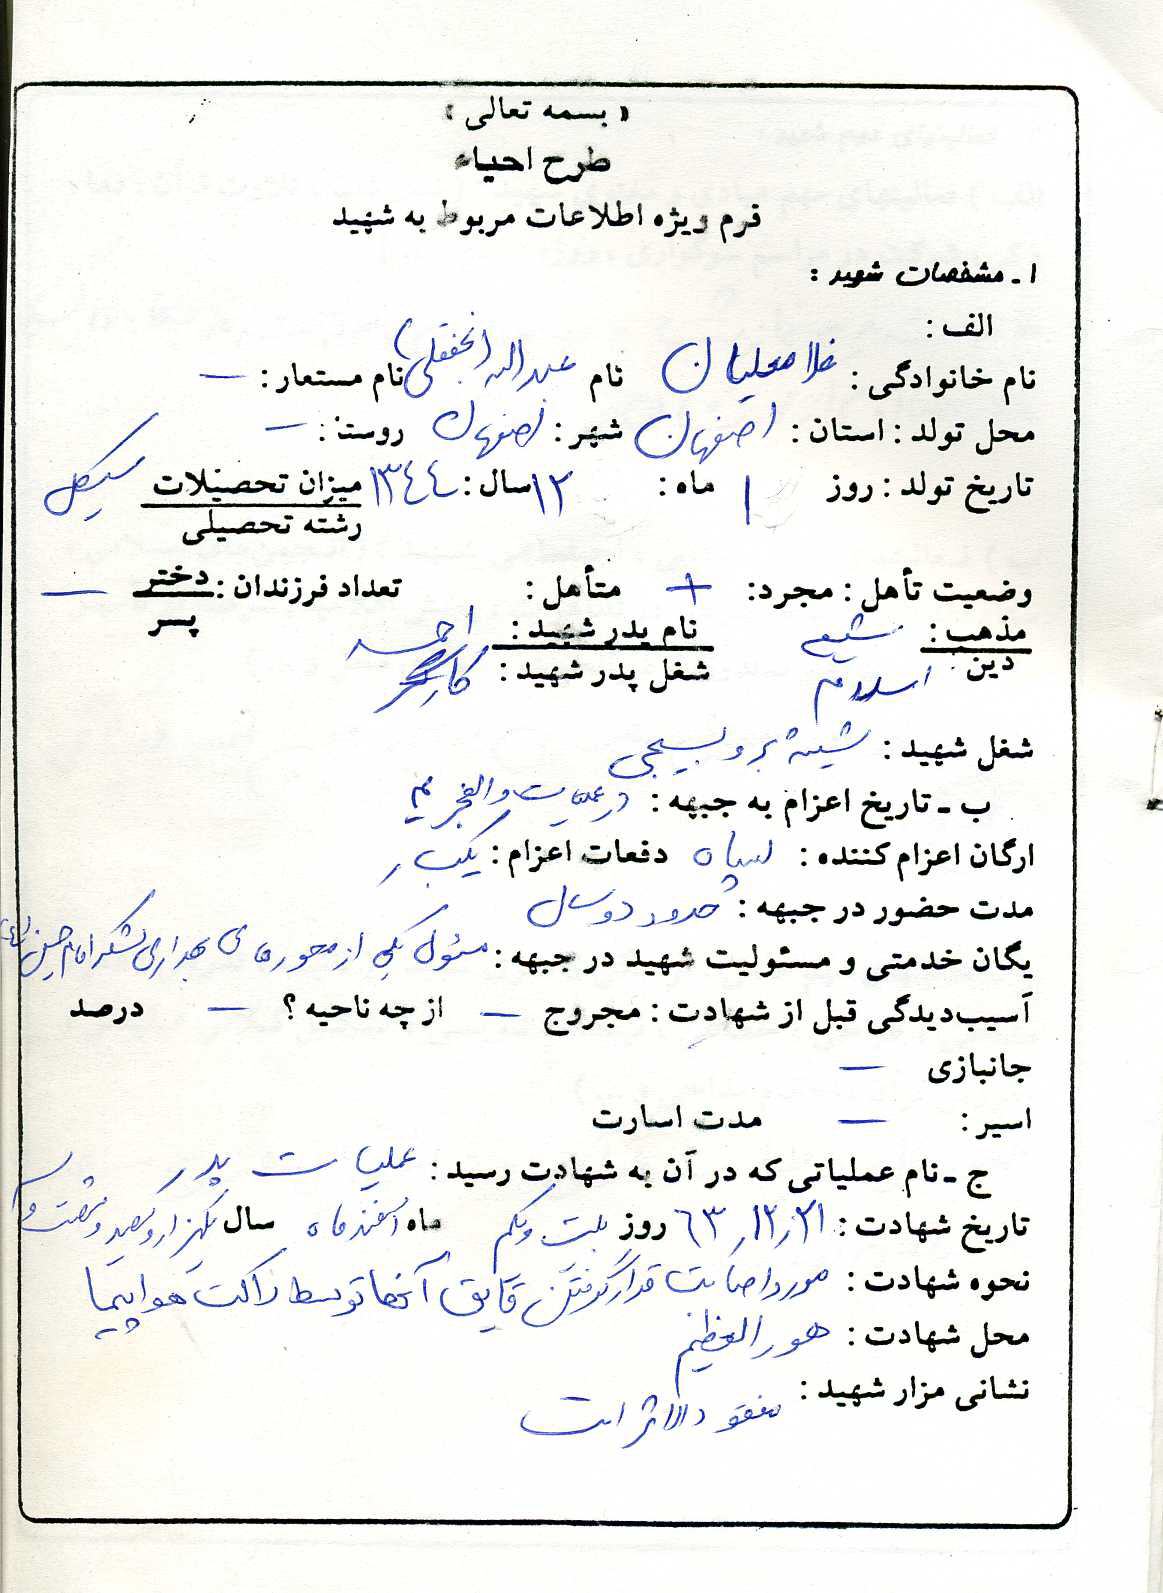 « بسمه تعالی »
طرح احیاء
فرم ویژه اطلاعات مربوط به شهید
۱ - مشخصات شهید :
الف :
نام خانوادگی : غلامعلیان نام عبداله (نجفقلی) نام مستعار : —
محل تولد : استان : اصفهان شهر : اصفهان روستا : —
تاریخ تولد : روز ۱ ماه : ۱۲ سال : ۱۳۴۴ میزان تحصیلات سیکل
رشته تحصیلی
وضعیت تأهل : مجرد : + متأهل : تعداد فرزندان : دختر —
پسر
مذهب : شیعه نام پدر شهید : احمد
دین : اسلام شغل پدر شهید : کارگر
شغل شهید : شیشه بر و بسیجی
ب - تاریخ اعزام به جبهه : در عملیات والفجر
ارگان اعزام کننده : سپاه دفعات اعزام : یکبار
مدت حضور در جبهه : حدود دو سال
یگان خدمتی و مسئولیت شهید در جبهه : مسئول یکی از محورهای بهداری لشکر امام حسین (ع)
آسیب‌دیدگی قبل از شهادت : مجروح — از چه ناحیه ؟ — درصد
جانبازی —
اسیر : — مدت اسارت
ج - نام عملیاتی که در آن به شهادت رسید : عملیات بدر
تاریخ شهادت : ۶۳,۱۲,۲۱ روز بیست و یکم ماه اسفندماه سال یکهزار و سیصد و شصت و
نحوه شهادت : مورد اصابت قرار گرفتن قایق آنها توسط راکت هواپیما
محل شهادت : هورالعظیم
نشانی مزار شهید : مفقودالاثر است